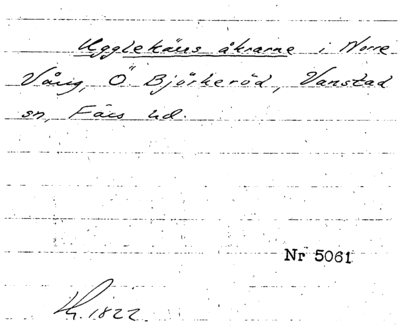 Ugglekärs åkrarne i Norre
Vång, Ö Björkeröd, Vanstad
sn, Färs hd.
Nr 5061
1822.